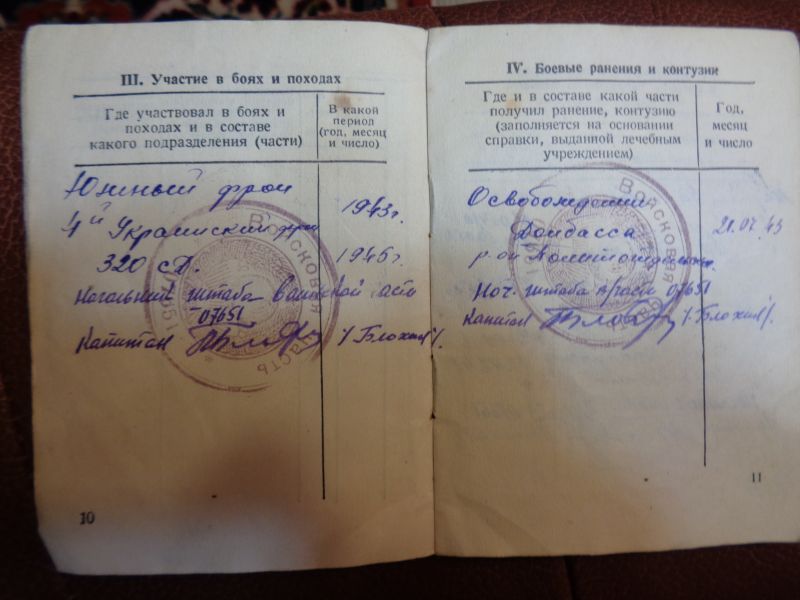 III. Участие в боях и походах
Где участвовал в боях и
походах и в составе
какого подразделения (части)
В какой
период
(год, месяц
и число)
Южный фрон
1943г.
4й Украинский фрон
320 сд.
1945г.
Начальник штаба воинской асти
07651
Капитан /Блохин/.
Войсковая часть
10
IV. Боевые ранения и контузии
Где и в составе какой части
получил ранение, контузию
(заполняется на основании
справки, выданной лечебным
учреждением)
Год,
месяц
и число
Освобождении
Донбасса
21.07.43
р-он
Нач. штаба в/части 07651
Капитан /Блохин/.
Войсковая часть
11